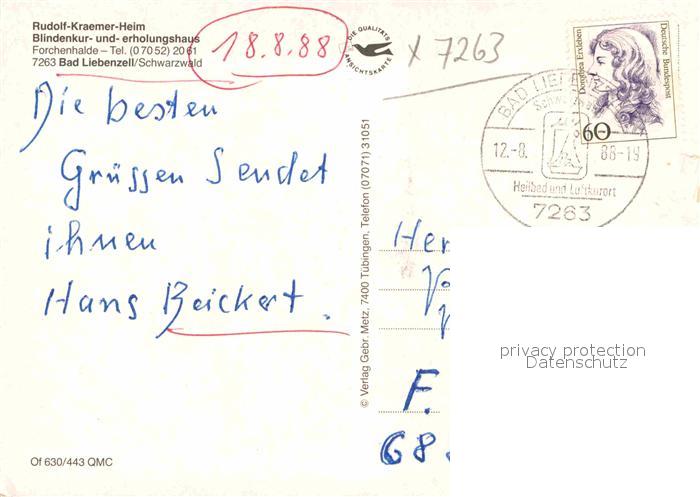 Rudolf-Kraemer-Heim
Blindenkur- und- erholungshaus
Forchenhalde – Tel. (0 70 52) 20 61
7263 Bad Liebenzell/Schwarzwald
18.8.88
DIE QUALITÄTS
ANSICHTSKARTE
X 7263
Deutsche Bundespost
Dorothea Erxleben
60
BAD LIEBENZ
Schw
12.-8.
88-19
Heilbad und Luftkurort
7263
Die besten
Grüssen Sendet
ihnen
Hans Beickert.
© Verlag Gebr. Metz, 7400 Tübingen, Telefon (07071) 31051
Her
F.
68
privacy protection
Datenschutz
Of 630/443 QMC